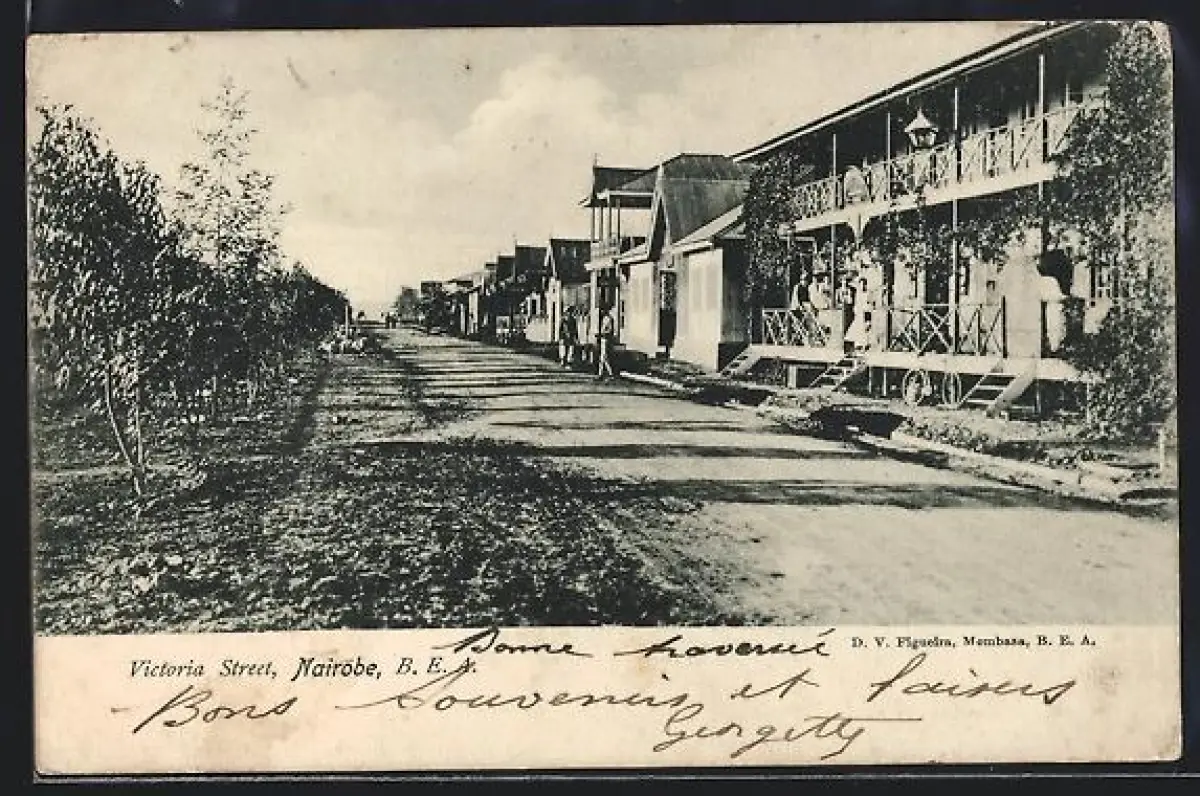 Victoria Street, Nairobe, B. E. A.
D. V. Figueira, Mombasa, B. E. A.
Bonne traversée
Bons Souvenirs et
Georgetty